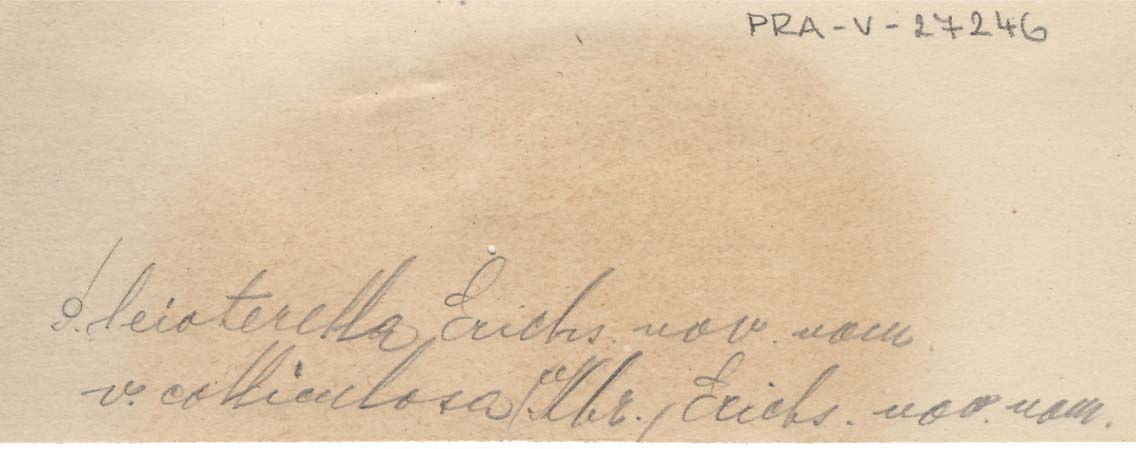 PRA-V-27246
P. leioterella Erichs. nov. nom.
v. colliculosa (Kbr.) Erichs. nov. nom.